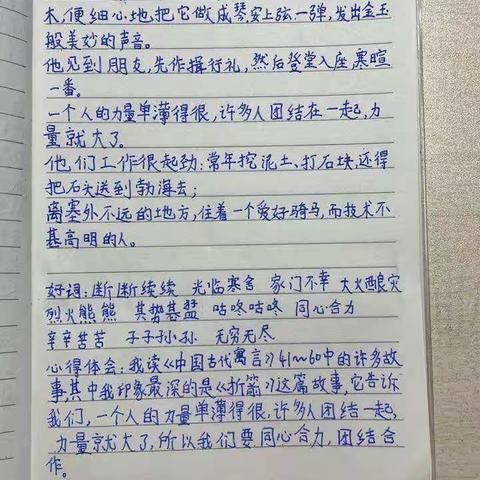 木,便细心地把它做成琴,安上弦一弹,发出金玉
般美妙的声音。
他见到朋友,先作揖行礼,然后登堂入座寒暄
一番。
一个人的力量单薄得很,许多人团结在一起,力
量就大了。
他们工作很起劲:常年挖泥土、打石块,还得
把石头送到勃海去;
离塞外不远的地方,住着一个爱好骑马,而技术不
甚高明的人。
好词:断断续续 光临寒舍 家门不幸 大火酿灾
烈火熊熊 其势甚猛 咕咚咕咚 同心合力
辛辛苦苦 子子孙孙 无穷无尽
心得体会:我读《中国古代寓言》41~60中的许多故
事,其中我印象最深的是《折箭》这篇故事,它告诉
我们,一个人的力量单薄得很,许多人团结一起,
力量就大了,所以我们要同心合力,团结合
作。